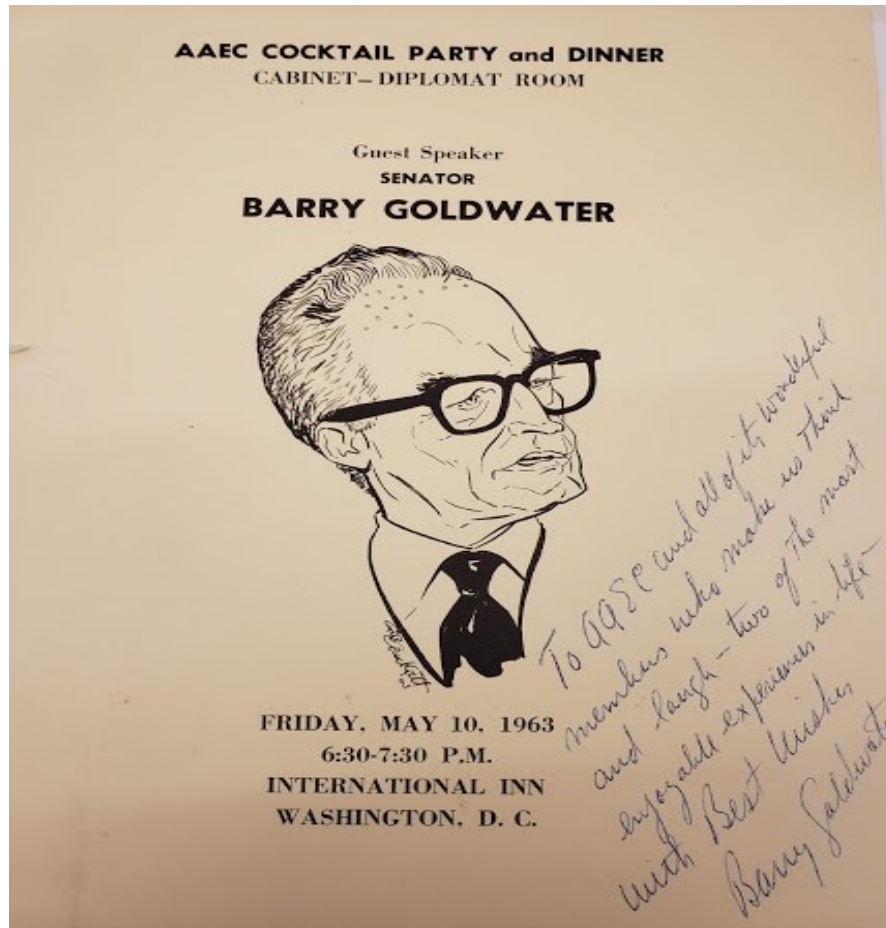 AAEC COCKTAIL PARTY and DINNER
CABINET—DIPLOMAT ROOM
Guest Speaker
SENATOR
BARRY GOLDWATER
FRIDAY, MAY 10, 1963
6:30-7:30 P.M.
INTERNATIONAL INN
WASHINGTON, D. C.
To AAEC and all of its wonderful
members who make us think
and laugh — two of the most
enjoyable experiences in life —
with Best Wishes
Barry Goldwater